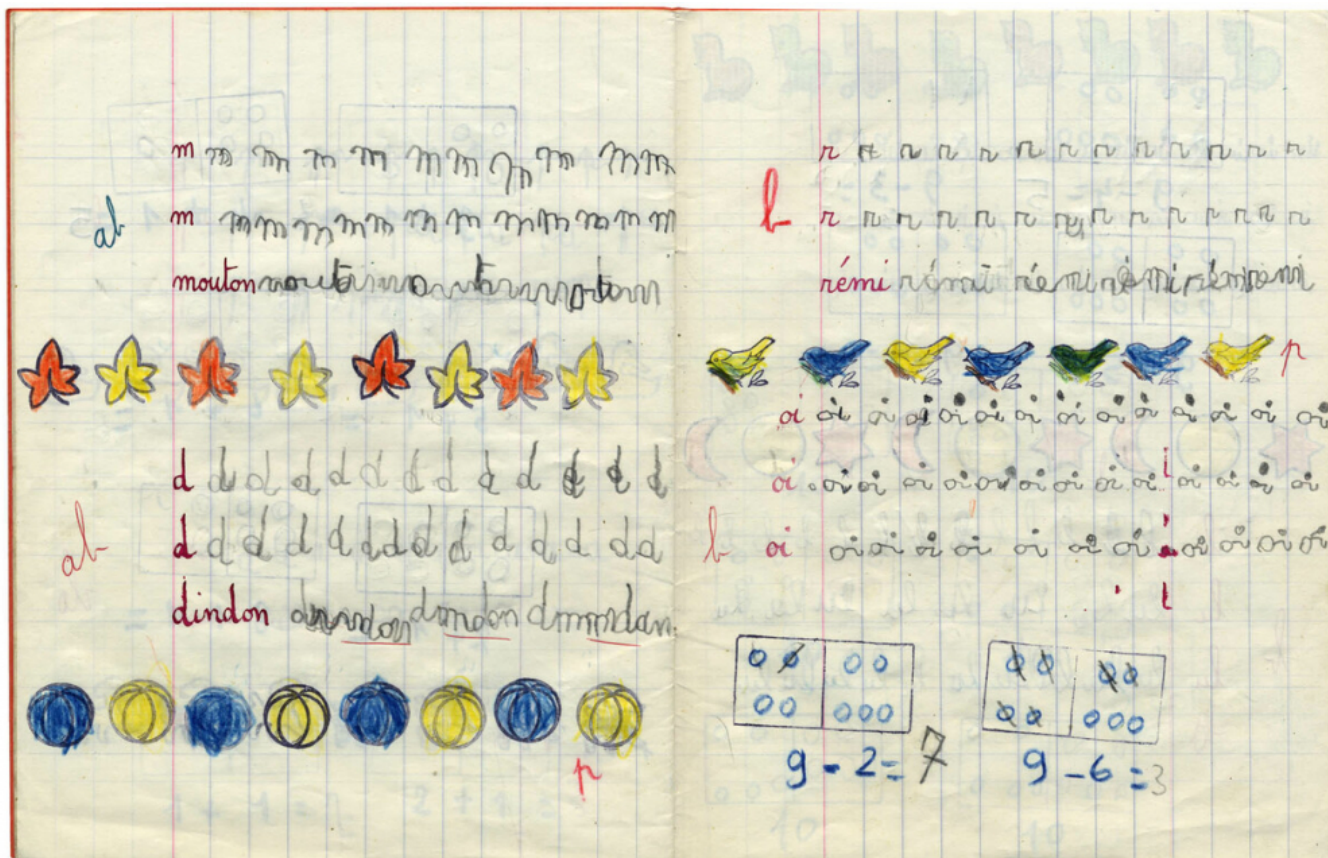 m m m m m m m m m m m
ab
m m m m m m m m m m m m m
mouton
d d d d d d d d d d d d
ab
d d d d d d d d d d d d
dindon dindon
p
r r r r r r r r r r r r r
b
r r r r r r r r r r r r r
rémi rémi rémi rémi rémi remi
p
oi oi oi oi oi oi oi oi oi oi oi oi oi oi
oi oi oi oi oi oi oi oi oi oi i oi oi oi oi
b oi oi oi oi oi oi oi oi oi oi oi oi
9 - 2 = 7
9 - 6 = 3